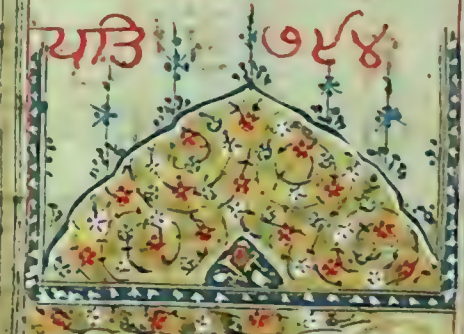 ਪਤਿ ੭੯੪